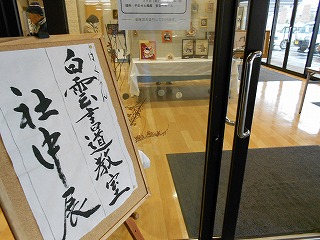 はくうん
白雲書道教室
社中展